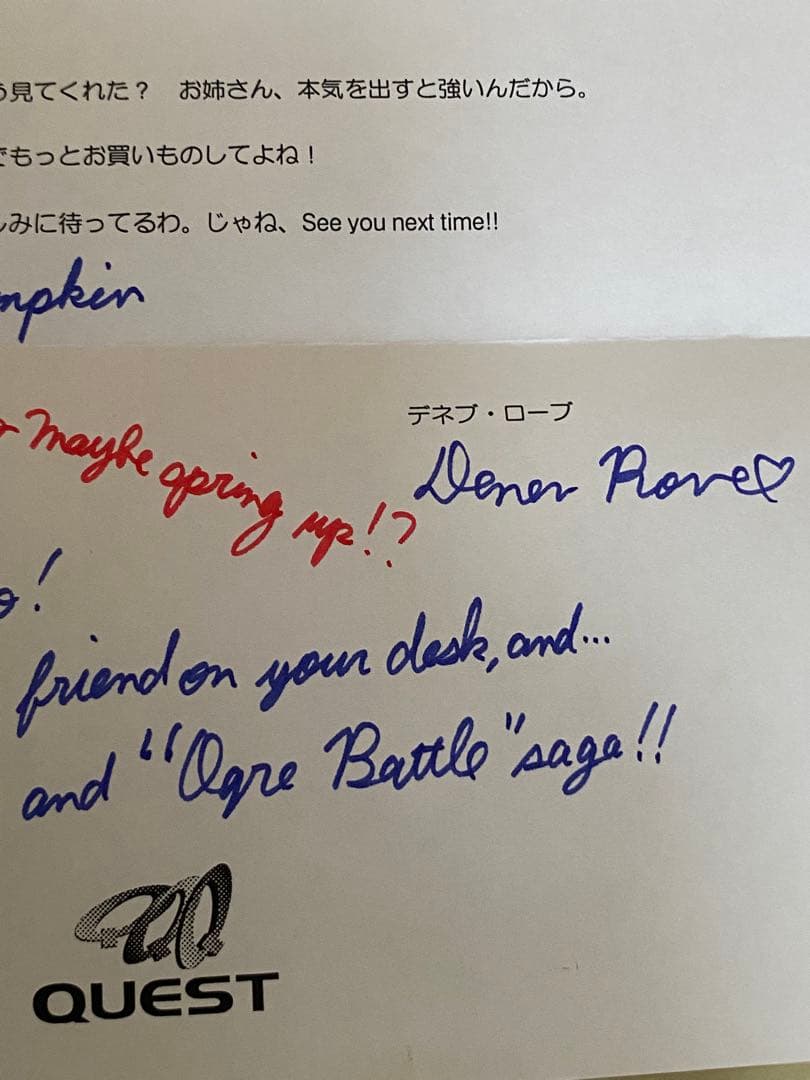 見てくれた？　お姉さん、本気を出すと強いんだから。
でもっとお買いものしてよね！
みに待ってるわ。じゃね、See you next time!!
mpkin
デネブ・ローブ
Maybe spring up!?
Denev Rove♡
o!
friend on your desk, and...
and "Ogre Battle" saga!!
QUEST